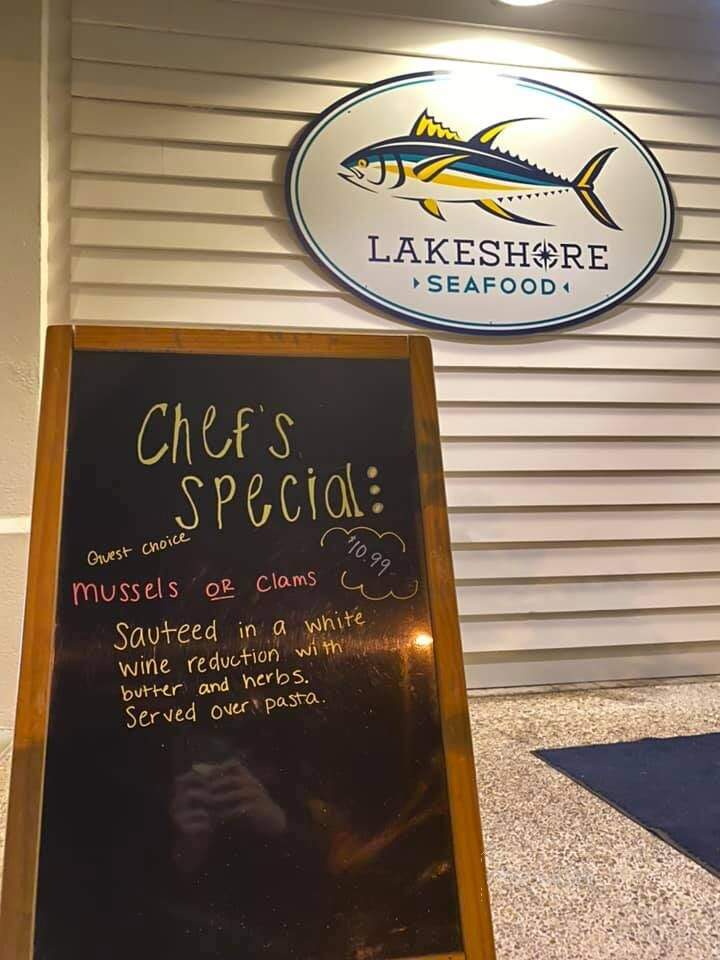 LAKESHORE
SEAFOOD
Chef's
Special:
Guest choice
$10.99
mussels OR Clams
Sauteed in a white
wine reduction with
butter and herbs.
Served over pasta.